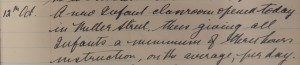 12th Oct. A new Infant classroom opened today
in Hutter Street, thus giving all
Infants a minimum of three hours
instruction, on the average, per day.